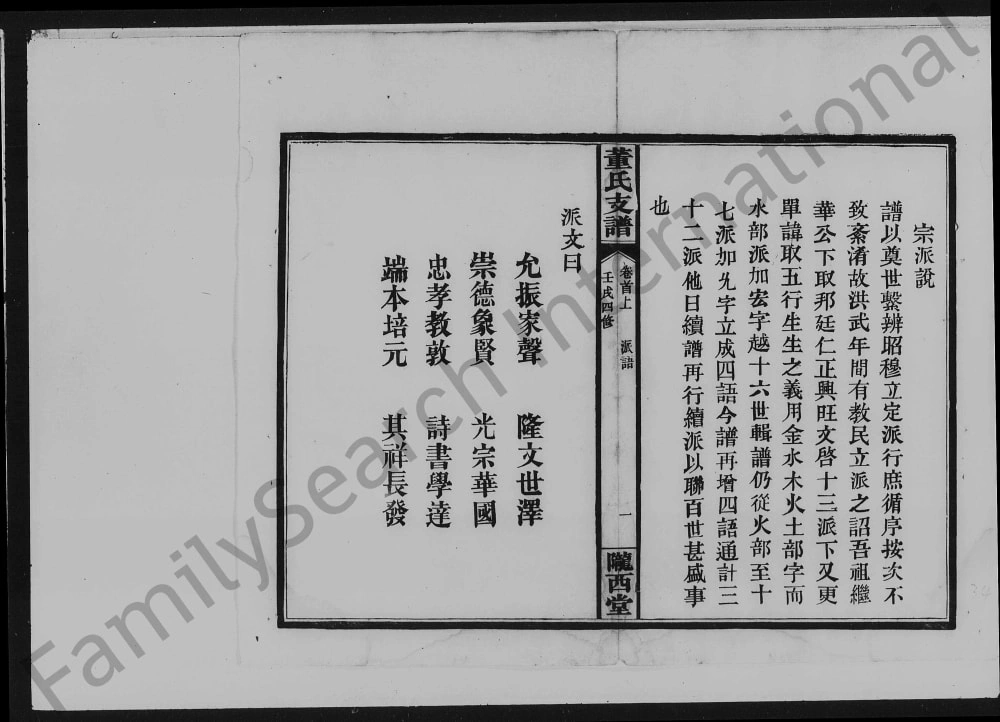 宗派說
譜以奠世繫辨昭穆立定派行庶循序按次不
致紊淆故洪武年間有教民立派之詔吾祖繼
華公下取邦廷仁正興旺文啓十三派下又更
單諱取五行生生之義用金水木火土部字而
水部派加宏字越十六世輯譜仍從火部至十
七派加允字立成四語今譜再增四語通計三
十二派他日續譜再行續派以聯百世甚盛事
也
董氏支譜
卷首上 派語
壬戌四修
一
隴西堂
派文曰
允振家聲 隆文世澤
崇德象賢 光宗華國
忠孝教敦 詩書學達
端本培元 其祥長發
FamilySearch International
34